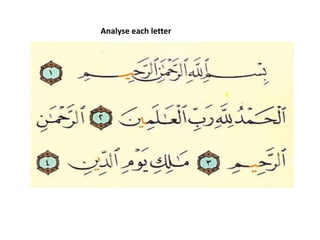 Analyse each letter
بِسْمِ ٱللَّهِ ٱلرَّحْمَٰنِ ٱلرَّحِيمِ ١
ٱلْحَمْدُ لِلَّهِ رَبِّ ٱلْعَٰلَمِينَ ٢ ٱلرَّحْمَٰنِ
ٱلرَّحِيمِ ٣ مَٰلِكِ يَوْمِ ٱلدِّينِ ٤